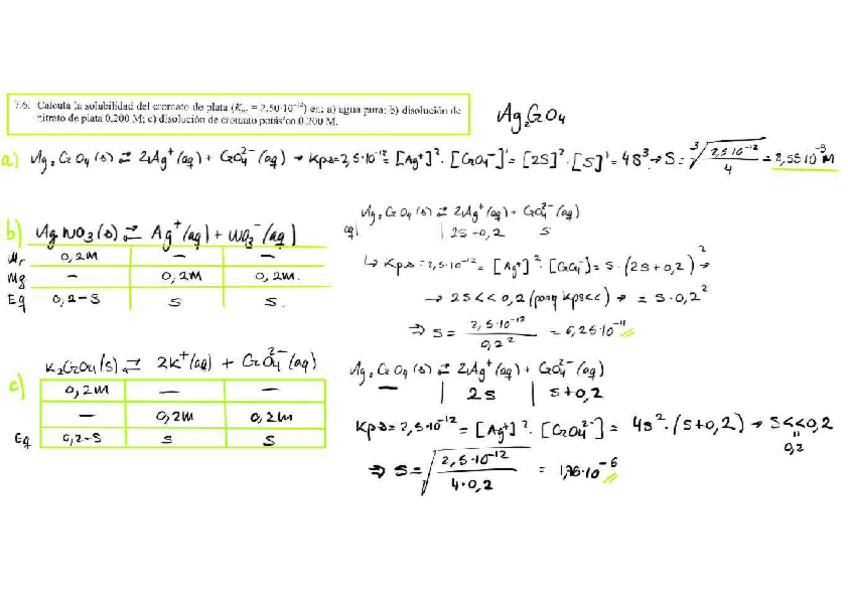 7.6. Calcula la solubilidad del cromato de plata (Kps = 2,50·10⁻¹²) en: a) agua pura; b) disolución de
nitrato de plata 0.200 M; c) disolución de cromato potásico 0.200 M.
Ag₂CrO₄
a) Ag₂CrO₄(s) ⇄ 2Ag⁺(aq) + CrO₄²⁻(aq) → Kps=2,5·10⁻¹² = [Ag⁺]²·[CrO₄²⁻]¹ = [2S]²·[S]¹ = 4S³ → S = ³√(2,5·10⁻¹²/4) = 8,55·10⁻⁵ M
b) AgNO₃(s) ⇄ Ag⁺(aq) + NO₃⁻(aq)
0,2M — —
— 0,2M 0,2M.
Eq 0,2-S S S.
Ag₂CrO₄(s) ⇄ 2Ag⁺(aq) + CrO₄²⁻(aq)
eq | 2S+0,2 S
↳ Kps=2,5·10⁻¹² = [Ag⁺]²·[CrO₄²⁻] = S·(2S+0,2)² →
→ 2S<<0,2 (porq Kps<<) → = S·0,2²
⇒ S = 2,5·10⁻¹²/0,2² = 6,25·10⁻¹¹
c) K₂CrO₄(s) ⇄ 2K⁺(aq) + CrO₄²⁻(aq)
0,2M — —
— 0,2M 0,2M
Eq 0,2-S S S
Ag₂CrO₄(s) ⇄ 2Ag⁺(aq) + CrO₄²⁻(aq)
— | 2S | S+0,2
Kps=2,5·10⁻¹² = [Ag⁺]²·[CrO₄²⁻] = 4S²·(S+0,2) → S<<0,2
0,2
⇒ S = √(2,5·10⁻¹²/4·0,2) = 1,76·10⁻⁶